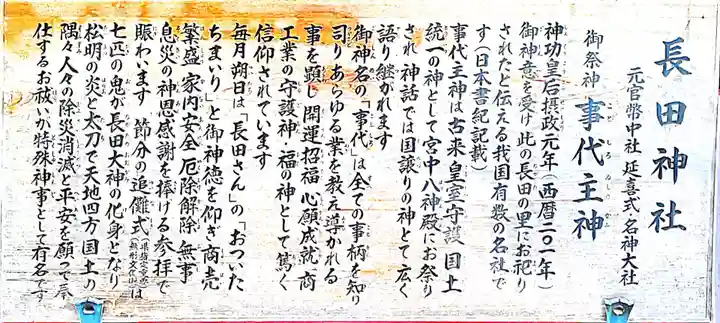 長田神社
元官幣中社 延喜式名神大社
御祭神 事代主神
神功皇后摂政元年(西暦二〇一年)
御神意を受け此の長田の里にお祀り
されたと伝える我国有数の名社で
す(日本書紀記載)
事代主神は古来皇室守護 国土
統一の神として宮中八神殿にお祭り
され 神話では国譲りの神とて広く
語り継がれます
御神名の「事代」は全ての事柄を知り
司り あらゆる業を教え導かれる
事を顕し 開運招福 心願成就 商
工業の守護神・福の神として篤く
信仰されています
毎月朔日は「長田さん」の「おついた
ちまいり」と御神徳を仰ぎ商売
繁盛 家内安全 厄除解除 無事
息災の神恩感謝を捧げる参拝で
賑わいます 節分の追儺式(県指定重要無形文化財)は
七匹の鬼が長田大神の化身となり
松明の炎と太刀で天地四方 国土の
隅々人々の除災消滅と平安を願って奉
仕するお祓いか特殊神事として有名です